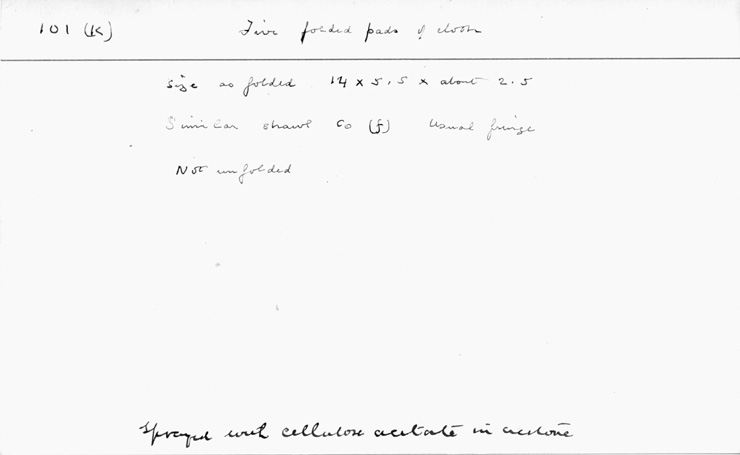 101 (K) Five folded pads of cloth
Size as folded 14 x 5.5 x about 2.5
Similar shawl to (f) Usual fringe
Not unfolded
Sprayed with cellulose acetate in acetone